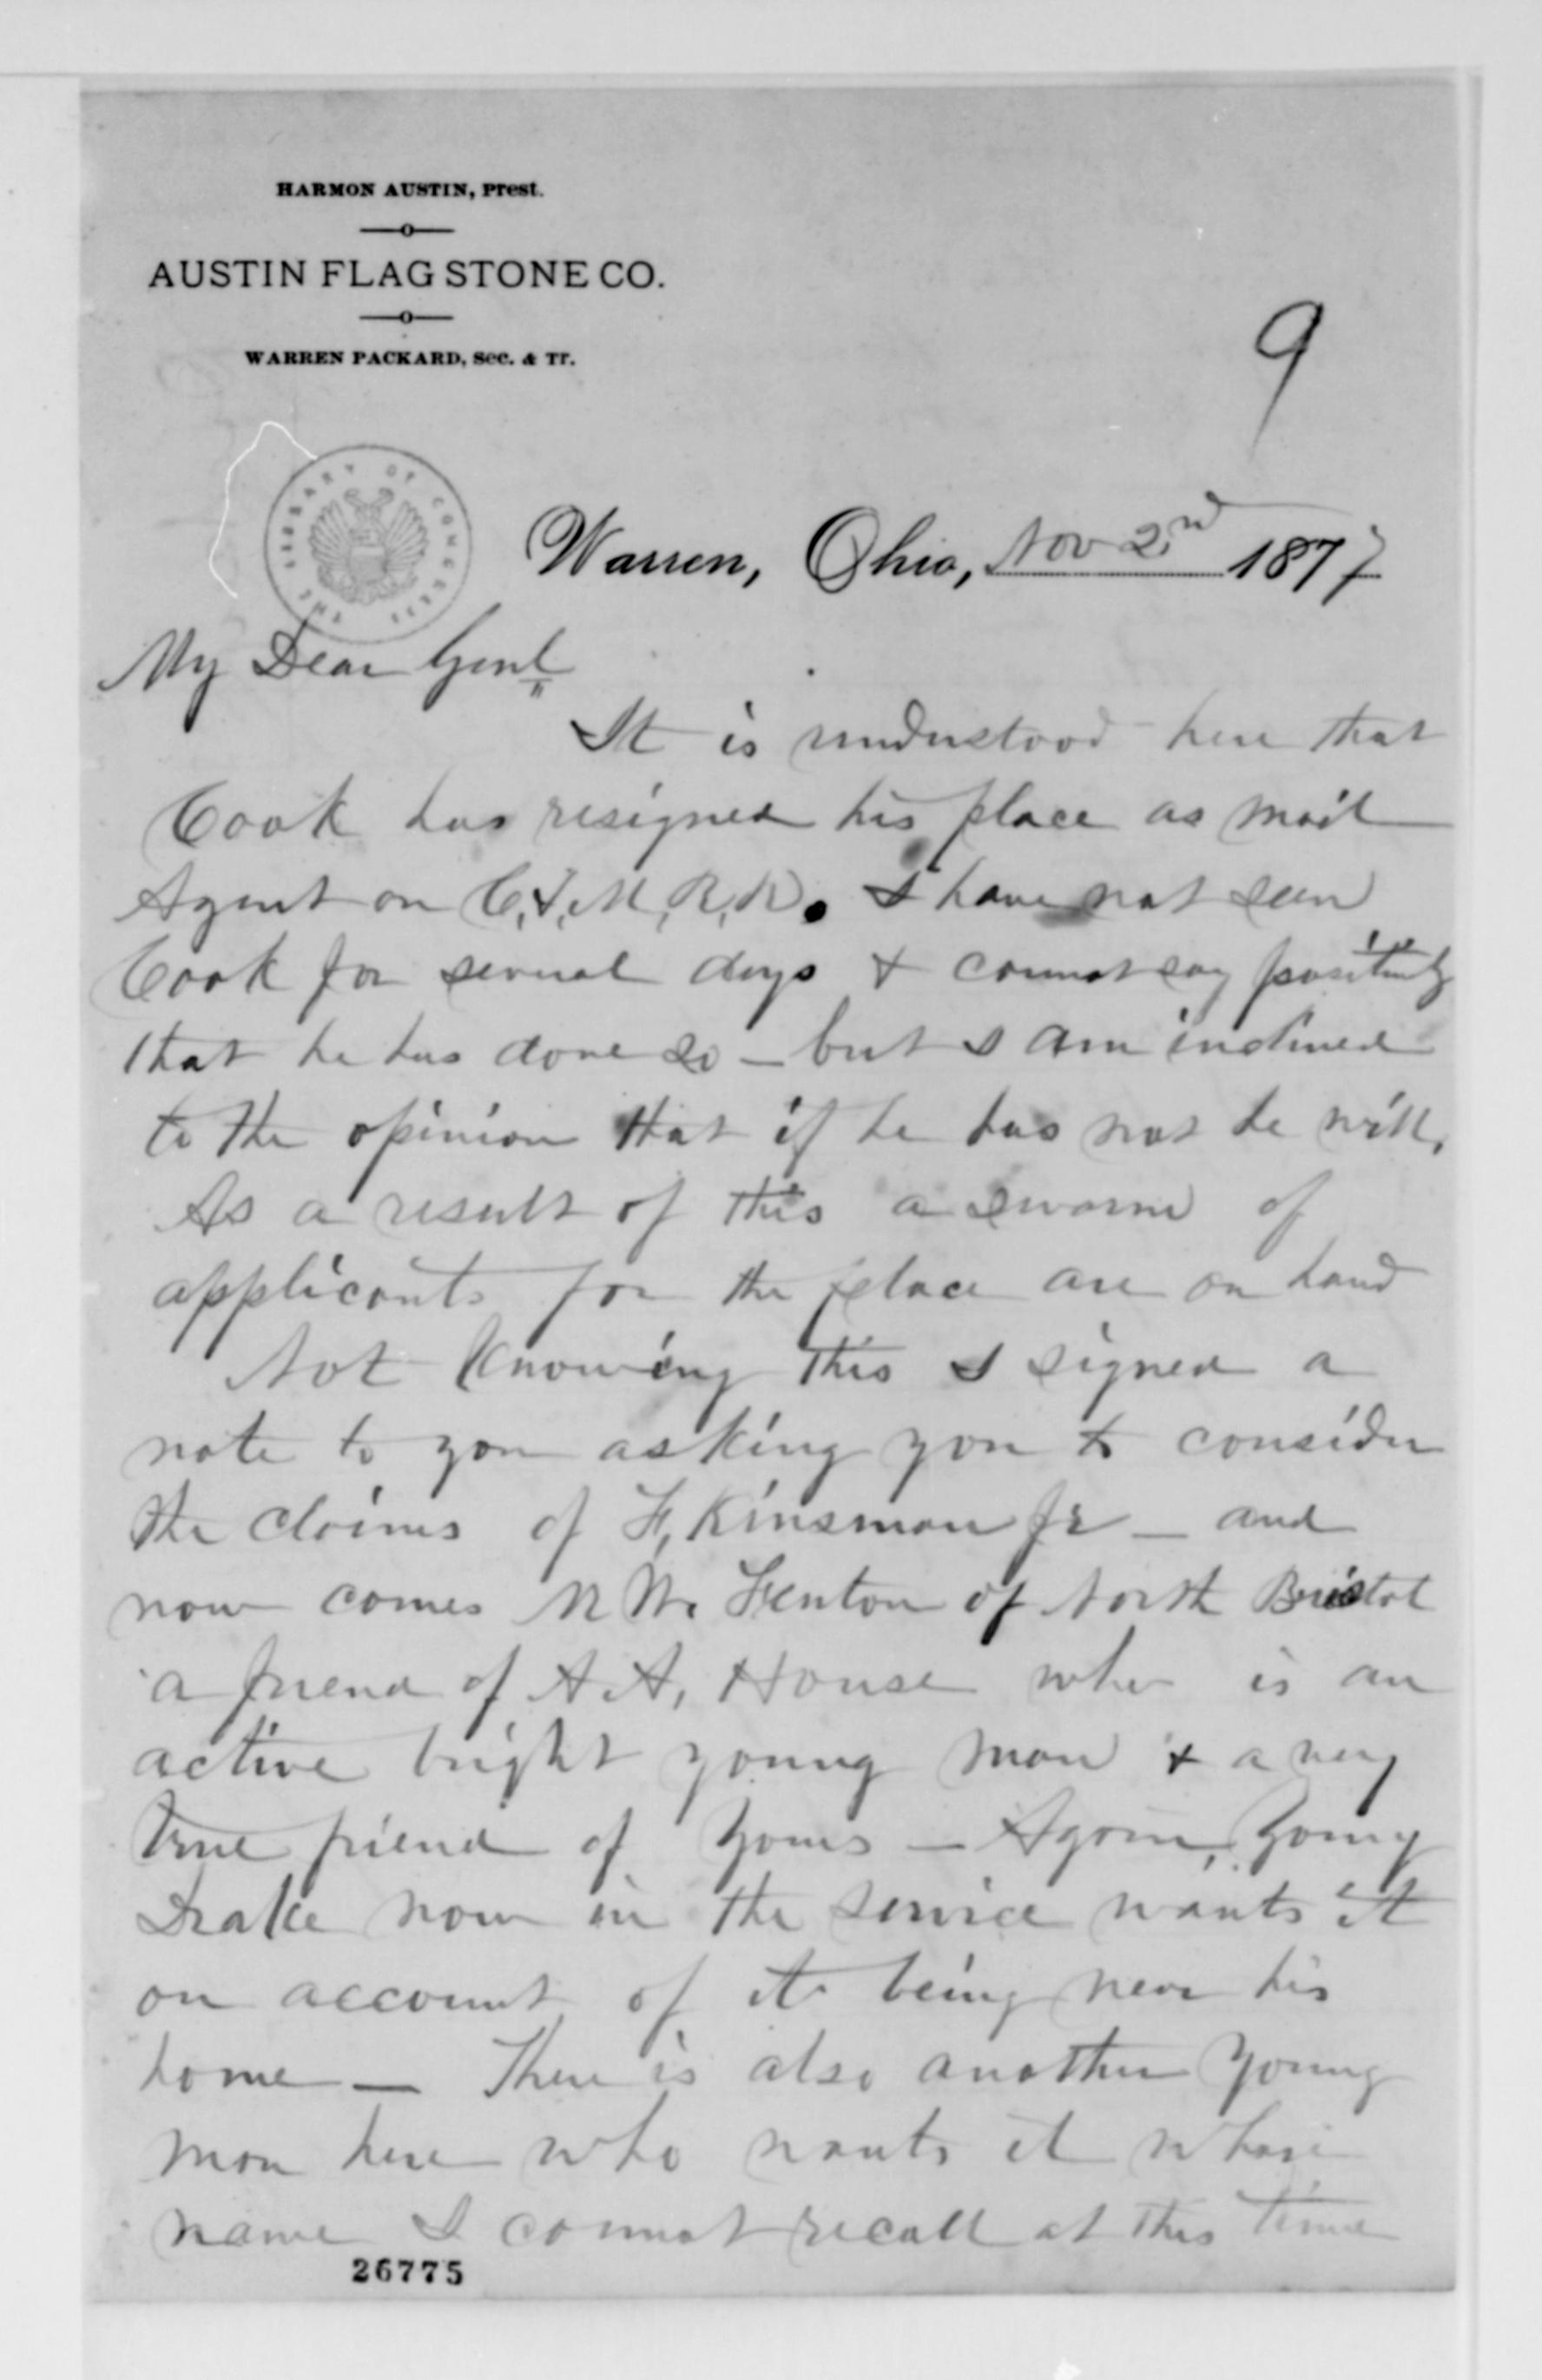 HARMON AUSTIN, Prest.
AUSTIN FLAG STONE CO.
WARREN PACKARD, Sec. & Tr.
9
THE LIBRARY OF CONGRESS
Warren, Ohio, Nov 2nd 1877
My Dear Genl
It is understood here that
Cook has resigned his place as mail
Agent on R.R. I have not seen
Cook for several days & cannot say positively
that he has done so – but I am inclined
to the opinion that if he has not he will.
As a result of this a swarm of
applicants for the place are on hand
Not knowing this I signed a
note to you asking you to consider
the claims of F. Kinsman Jr – and
now comes Fenton of North Bristol
a friend of A.A. House who is an
active bright young man & a very
true friend of yours – Again, Young
Drake now in the service wants it
on account of its being near his
home – There is also another young
man here who wants it whose
name I cannot recall at this time
26775